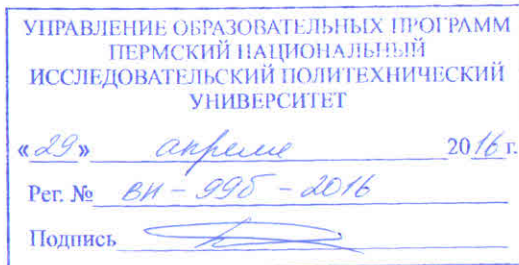 УПРАВЛЕНИЕ ОБРАЗОВАТЕЛЬНЫХ ПРОГРАММ
ПЕРМСКИЙ НАЦИОНАЛЬНЫЙ
ИССЛЕДОВАТЕЛЬСКИЙ ПОЛИТЕХНИЧЕСКИЙ
УНИВЕРСИТЕТ
«29» апреля 2016 г.
Рег. № ВН - 995 - 2016
Подпись